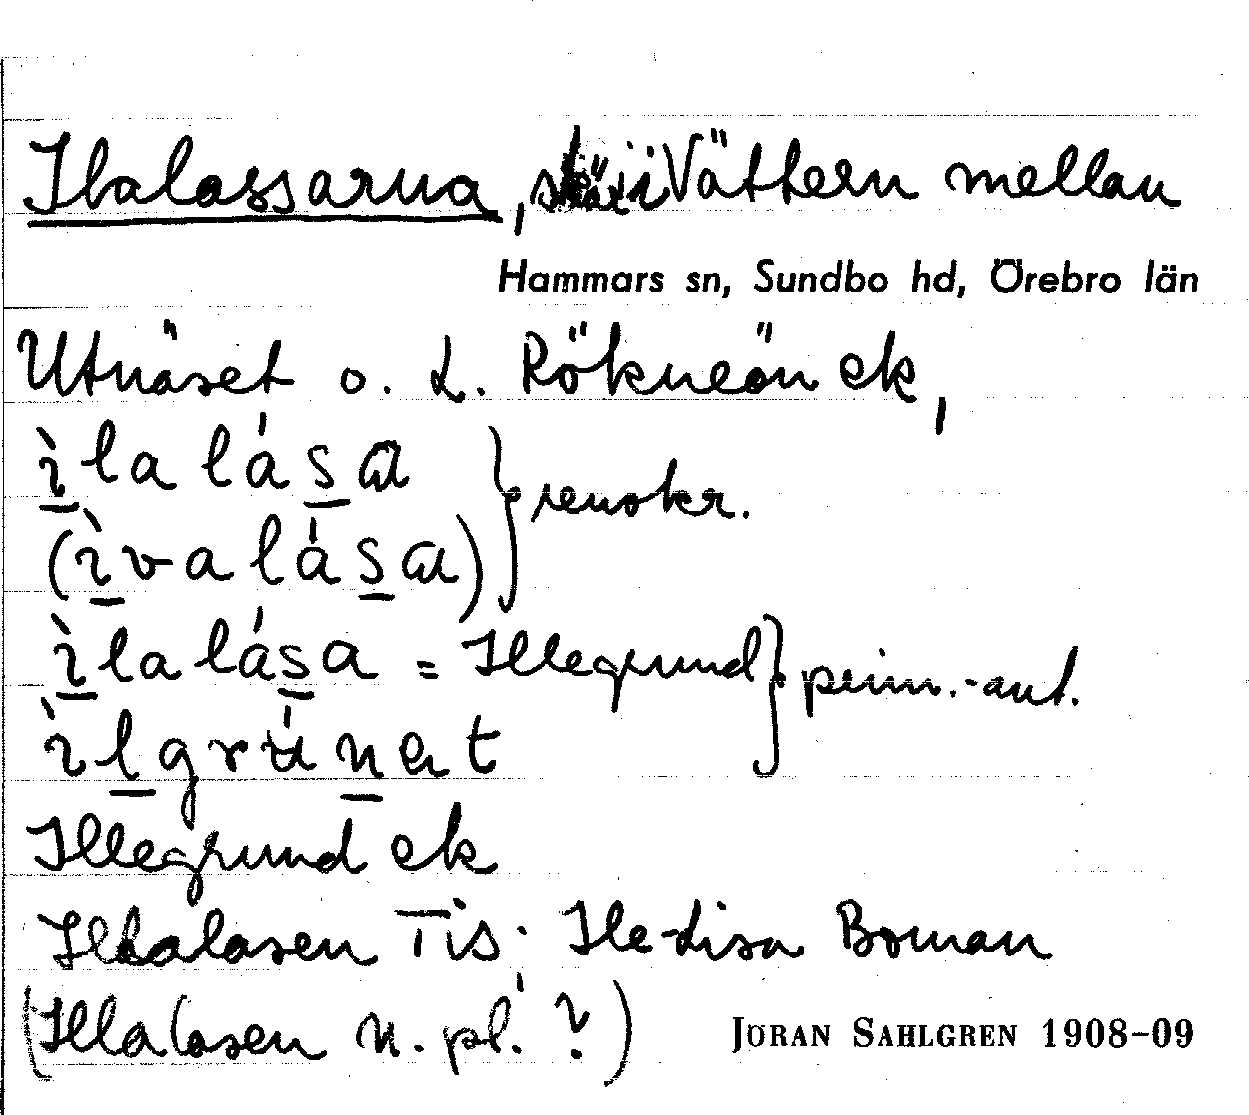 Ilalassarna, skär i Vättern mellan
Hammars sn, Sundbo hd, Örebro län
Utnäset o. L. Rökneön ek,
ìlalása
(ìvalása) } renskr.
ìlalása = Illegrund
ìlgrúnət } prim.-ant.
Illegrund ek
Illalasen Tis; Ile-Lisa Boman
(Illalasen n. pl.?)
JÖRAN SAHLGREN 1908–09